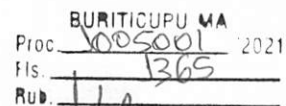 BURITICUPU MA
Proc. 1005001 2021
Fls. 1365
Rub.